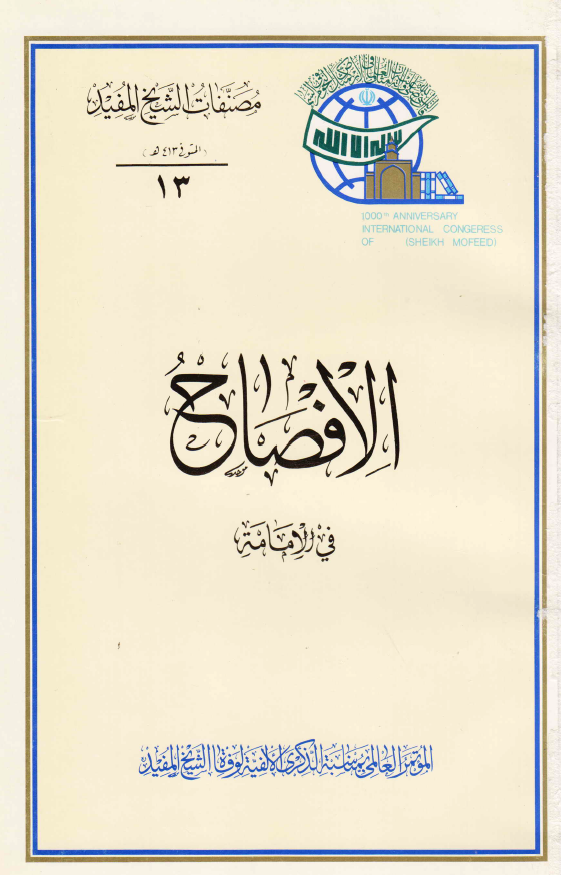 مصنفات الشيخ المفيد
(المتوفى ٤١٣ هـ)
١٣
لا إله إلا الله
1000TH ANNIVERSARY
INTERNATIONAL CONGERESS
OF (SHEIKH MOFEEID)
الإفصاح
في الإمامة
المؤتمر العالمي بمناسبة الذكرى الألفية لوفاة الشيخ المفيد